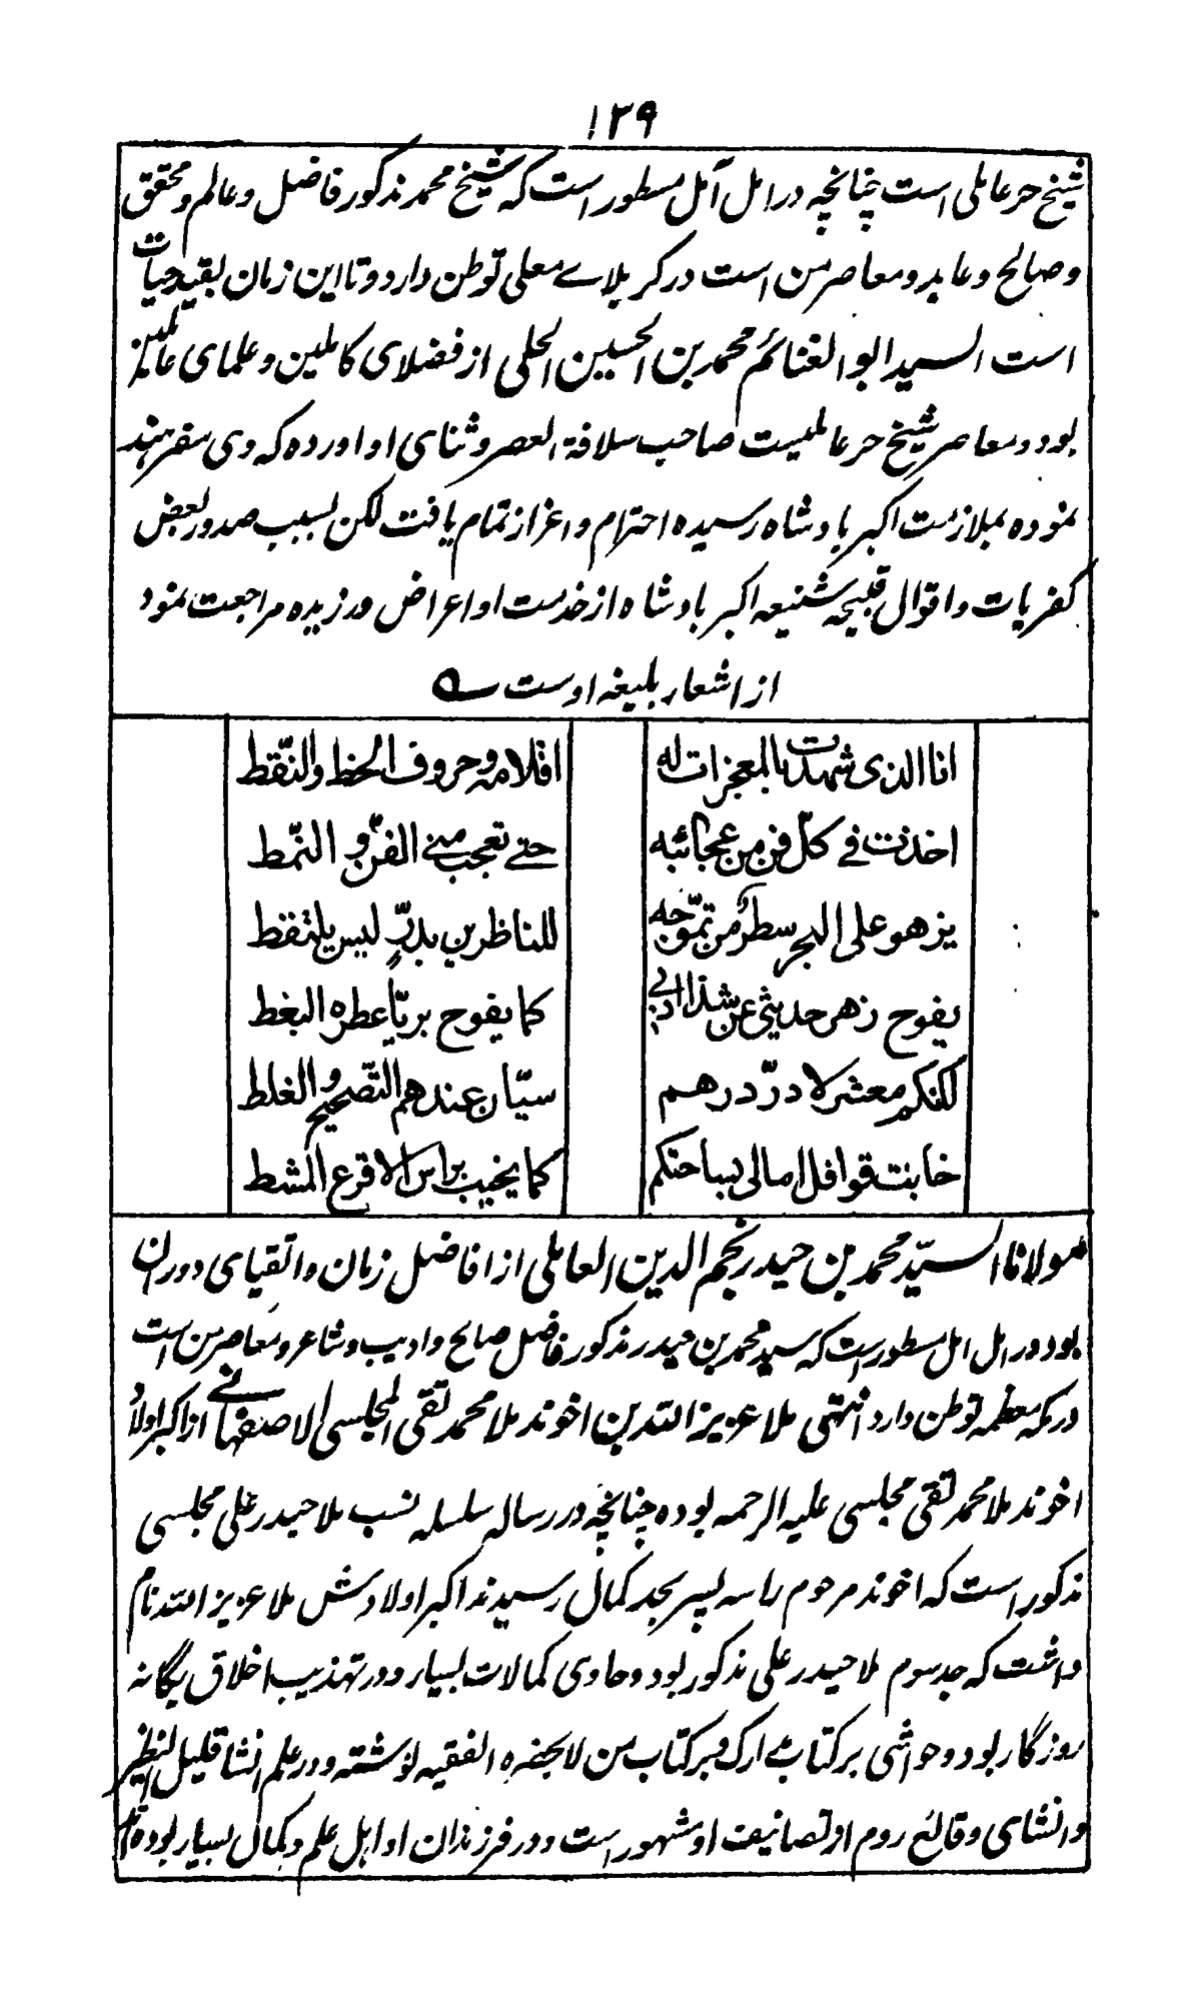 ١٢٩
شیخ حر عاملی است چنانچه در امل آمل مسطور است که شیخ محمد مذکور فاضل و عالم و محقق
و صالح و عابد و معاصر من است در کربلاے معلی توطن دارد و تا این زمان بقید حیات
است السید ابو الغنائم محمد بن الحسین الحلی از فضلای کاملین و علمای عاملین
بود و معاصر شیخ حر عاملیست صاحب سلافة العصر و ثنای او اورده که وی سفر هند
نموده بملازمت اکبر بادشاه رسیده احترام و اعزاز تمام یافت لکن بسبب صدور بعض
کفریات و اقوال قبیحه شنیعه اکبر بادشاه از خدمت او اعراض ورزیده مراجعت نمود
از اشعار بلیغه اوست
انا الذی شهدت بالمعجزات له اقلامه وحروف الخط والنّقط
اخذت فے کلّ فن من عجائبه حتے تعجب منے الفنّ و النّمط
یزهو علی البحر سطرٌ من تموّجه للناظرین بدرٍّ لیس یلتقط
یفوح زهر حدیثی عن شذا ادبی کما یفوح بریّا عطره البغط
لکنکم معشر لا درّ درهم سیّان عندهم التّصحیح و الغلط
خابت قوافل امالی بساحتکم کما یخیب براس الاقرع المشط
مولانا السیّد محمد بن حیدر نجم الدین العاملی از افاضل زمان و اتقیای دوران
بود در امل امل مسطور است که سید محمد بن حیدر مذکور فاضل صالح و ادیب و شاعر و معاصر من است
در مکه معظمه توطن دارد انتهی ملا عزیز الله بن اخوند ملا محمد تقی المجلسی الاصفهانے از اکبر اولاد
اخوند ملا محمد تقی مجلسی علیه الرحمه بوده چنانچه در رساله سلسله نسب ملا حیدر علی مجلسی
مذکور است که اخوند مرحوم را سه پسر بحد کمال رسیدند اکبر اولادش ملا عزیز الله نام
داشت که جد سوم ملا حیدر علی مذکور بود و حاوی کمالات بسیار و در تهذیب اخلاق یگانه
روزگار بود و حواشی بر کتاب مدارک و بر کتاب من لا یحضره الفقیه نوشته و در علم انشا قلیل النظیر
و انشای وقائع روم از تصانیف او مشهور است و در فرزندان او اهل علم و کمال بسیار بوده